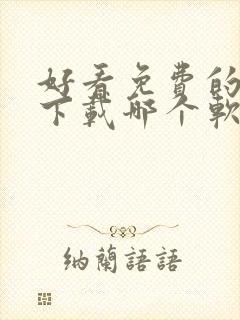 好看免费的
下载哪个软
纳兰語語